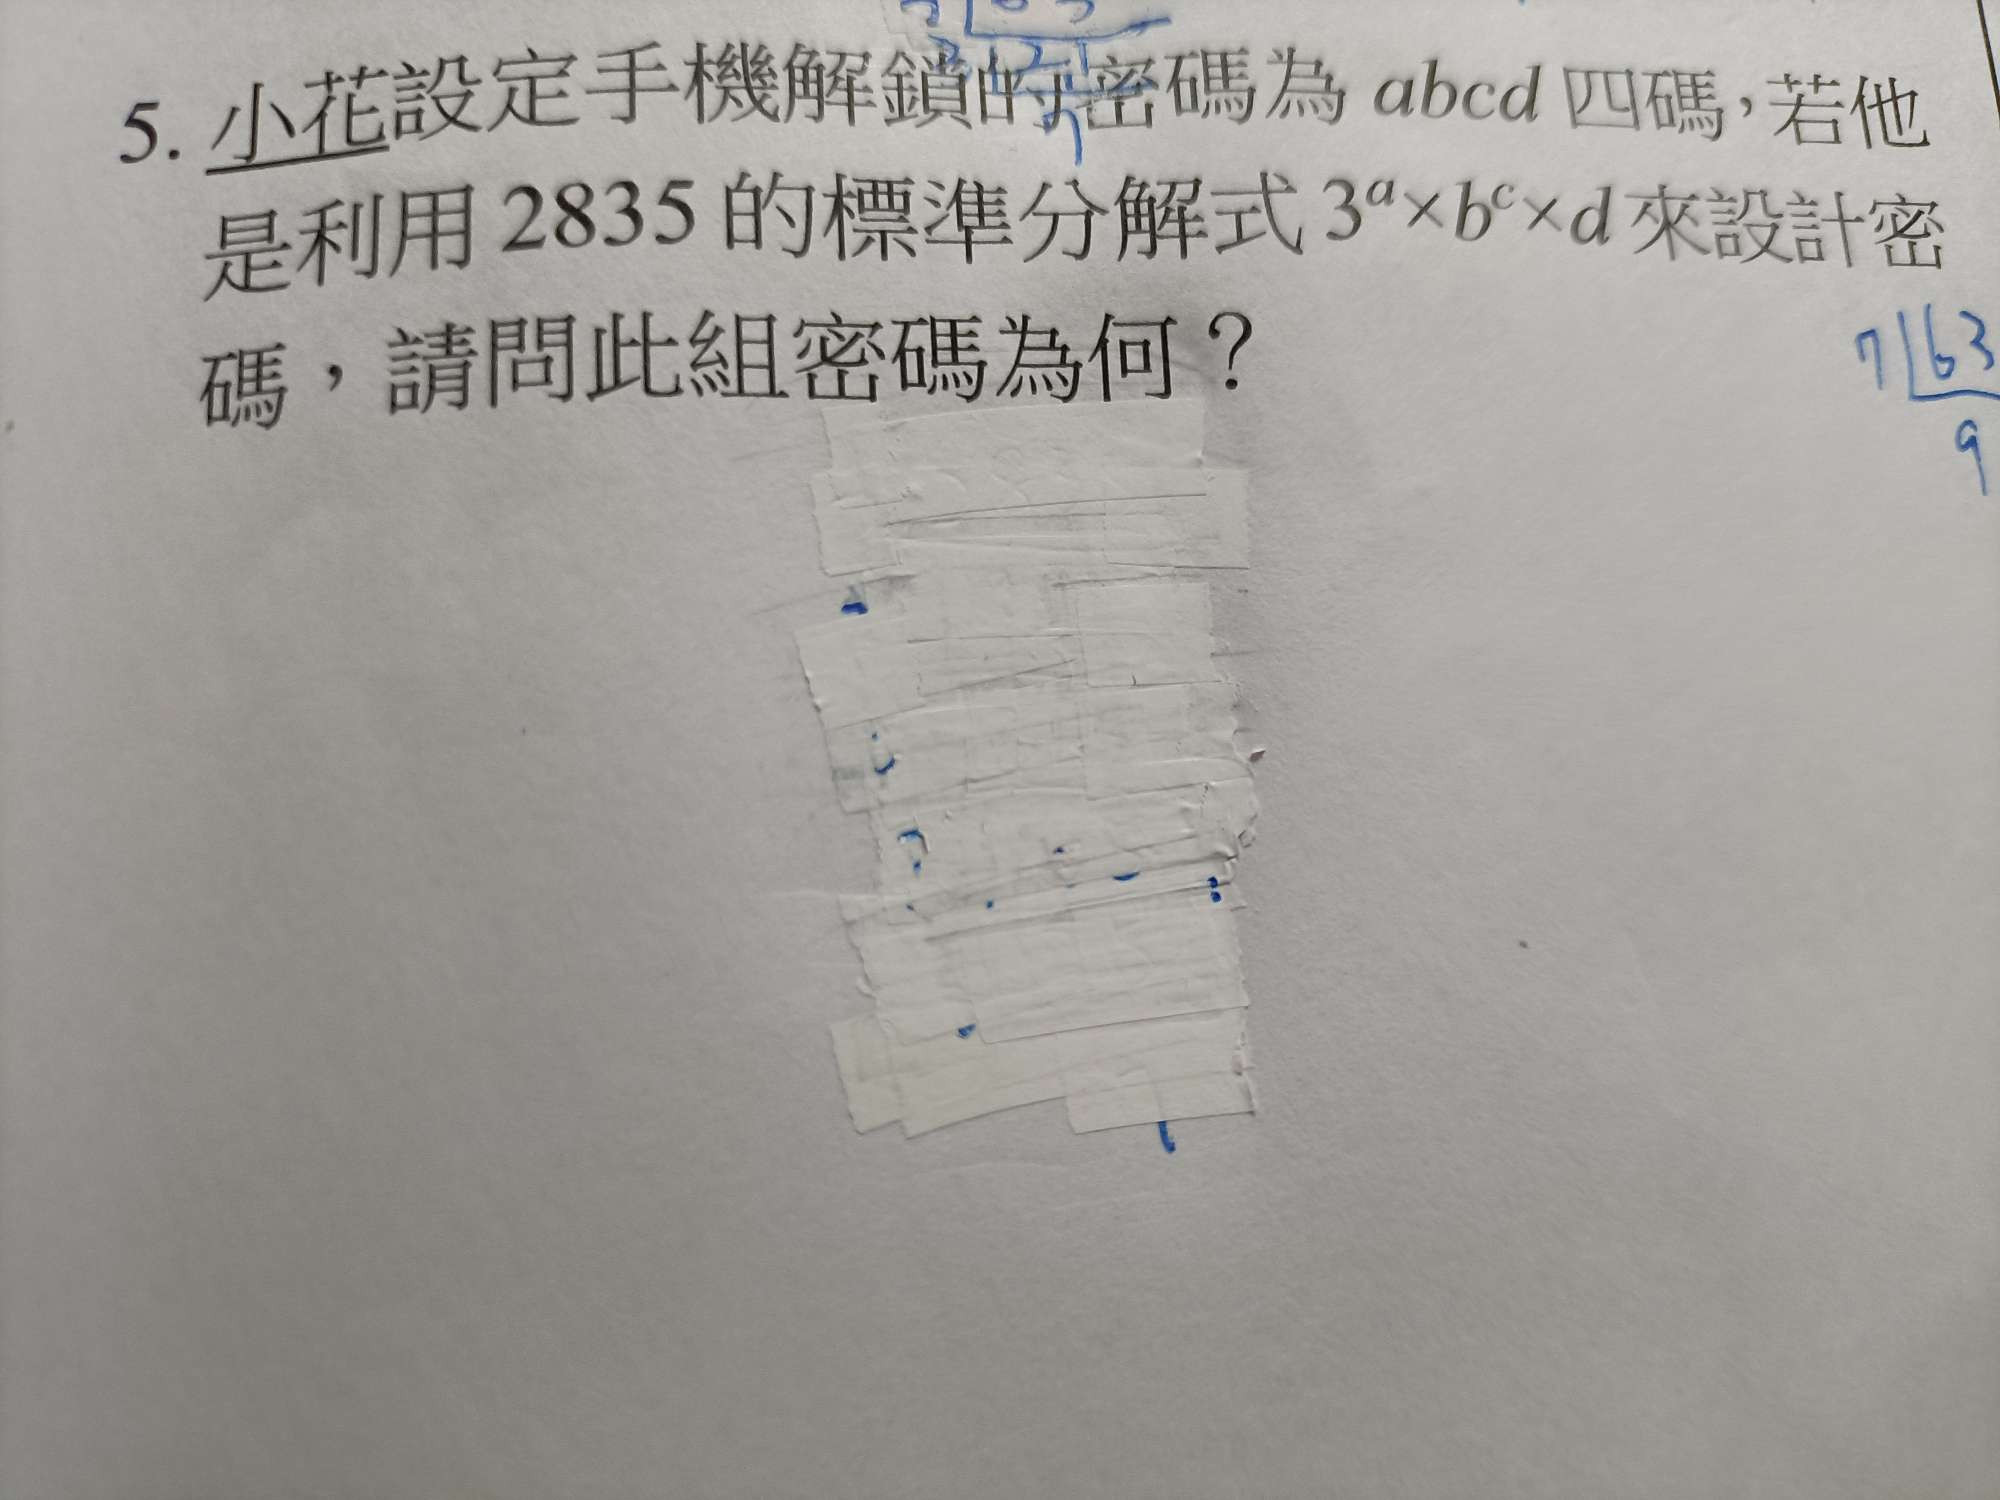 5. 小花設定手機解鎖的密碼為 abcd 四碼，若他
是利用 2835 的標準分解式 3ᵃ×bᶜ×d 來設計密
碼，請問此組密碼為何？
7 63
9